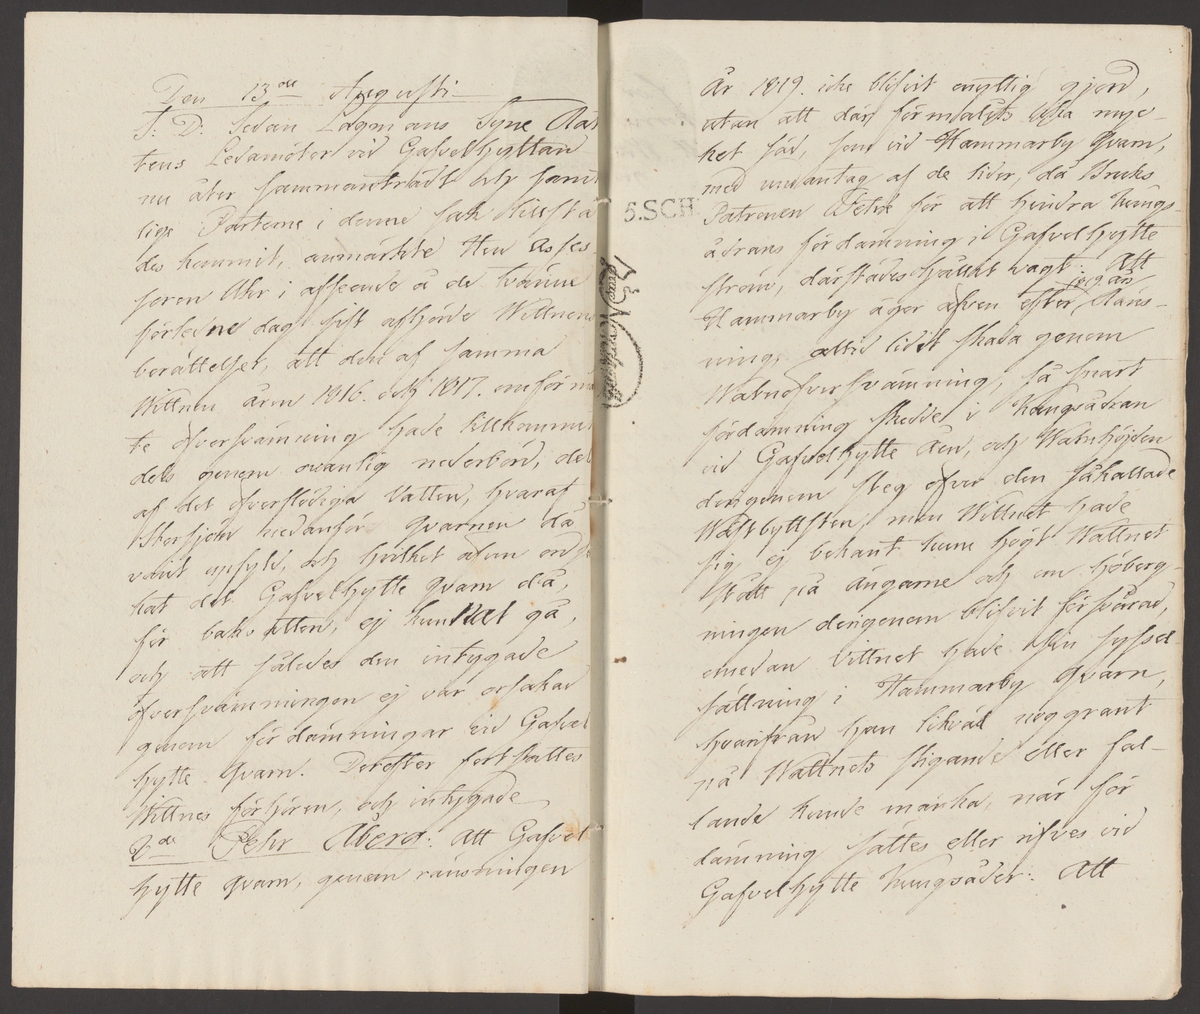 Den 13de Augusti
S: D: Sedan Lagmans Syne Rät
tens Ledamöter vid Gafvelhyttan
nu åter sammanträdt och samt
lige Parterne i denne sak tillsta
des kommit, anmärkte Herr Asses
soren Åhr i afseende å de tvänne
förledne dag sist afhörde Wittnens
berättelser, att den af samma
Wittnen åren 1816. och 1817. omförmä
te öfversvämning hade tillkommit
dels genom ovanlig nederbörd, del
af det öfverflödiga Vatten, hvaraf
Storsjön nedanför Qvarnen då
varit upfyld, och hvilket även orsa
kat det Gafvelhytte Qvarn då,
för bakvatten, ej kunnat gå,
och att således den intygade
öfversvämningen ej var orsakad
genom fördämningar vid Gafvel
hytte Qvarn. Derefter fortsattes
Wittnes förhören, och intygade
2de Pehr Åberg: Att Gafvel
hytte Qvarn, genom ränsningen
år 1819. icke blifvit onyttig gjord,
utan att där förmalits lika myc-
ket säd, som vid Hammarby Qvarn,
med undantag af de tider, då Bruks
Patronen Petré för att hindra Kungs-
ådrans fördämning i Gafvelhytte
ström, därstädes hållit vagt: Att
Hammarby ägor äfven efter Räns-
ning, altid lidit skada genom
Watnöfversvämning, så snart
fördämning skedde i Kungsådran
vid Gafvelhytte Åen, och Watnhöjden
derigenom steg öfver den såkallade
Wåtbyttsten; men Wittnet hade
sig ej bekant huru högt Wattnet
stått på ängarne och om höberg-
ningen derigenom blifvit försvårad,
emedan Vittnet hade sin syssel
sättning i Hammarby Qvarn,
hvarifrån han likväl noggrant
på Wattnets stigande eller fal-
lande kunde märka, när för
dämning sattes eller rifves vid
Gafvelhytte Kungsåder: Att
5.SCH